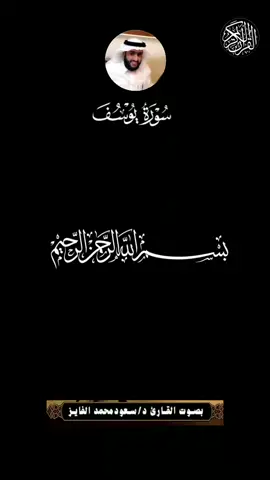 القرآن الكريم
سُورَةُ يُوسُفَ
بِسْمِ اللَّهِ الرَّحْمَٰنِ الرَّحِيمِ
بصوت القارئ د/سعود محمد الفايز